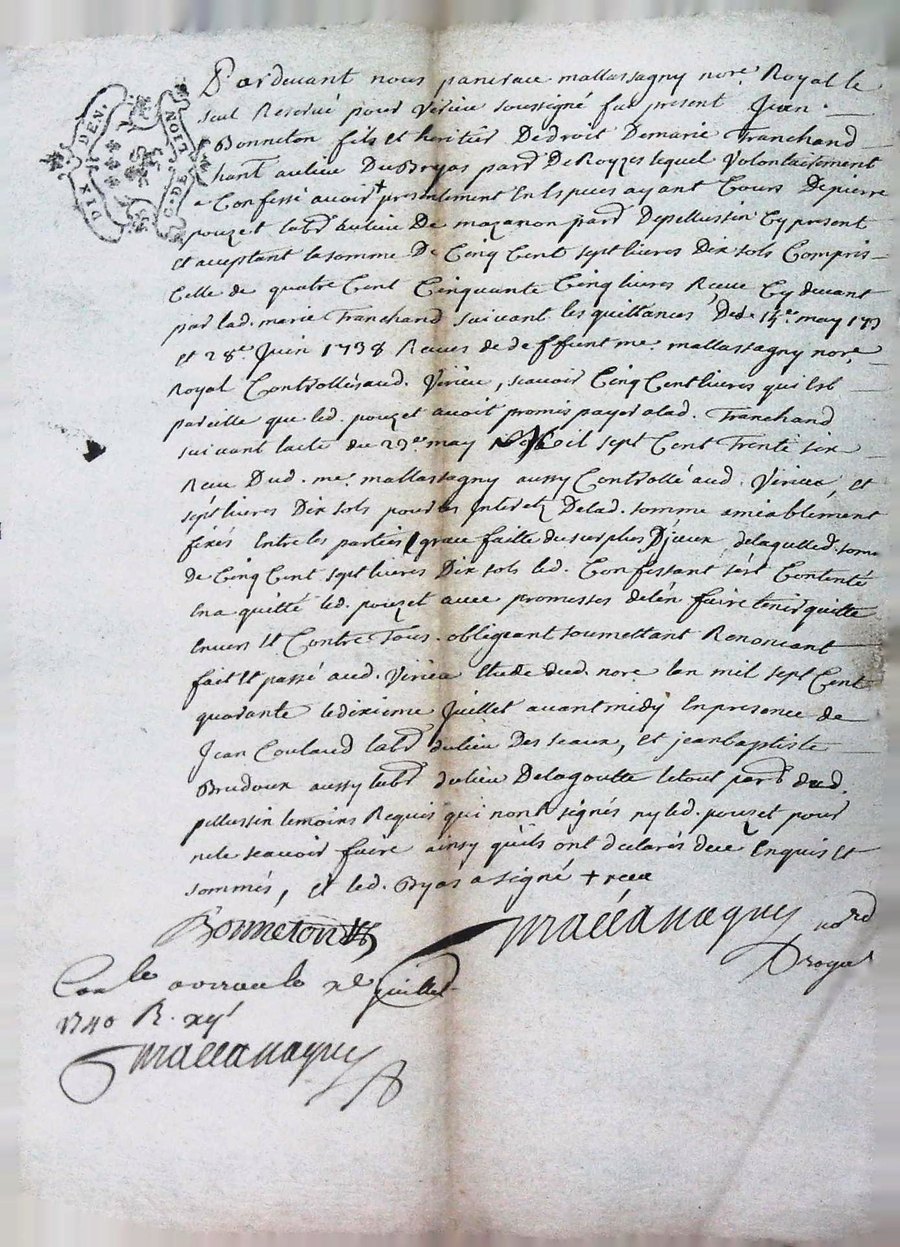 DIX DEN. G. G. LION
Pardevant nous pancrace mallassagny nore Royal le
seul Reservé pour Virieu soussigné fut present Jean
Bonneton fils et heritier De droit De marie Tranchand
hant au lieu Du Bryas pard De Royzes lequel Volontairement
a Confessé avoir + presentement En Espuces ayant Cours De pierre
pouzet labr au lieu De mazanon pard De pellussin Cy present
et acceptant la somme De Cinq Cent sept livres Dix sols Compris
Celle de quatre Cent Cinquante Cinq livres Reeue Cy devant
par lad. marie Tranchand suivant les quittances Des 14e may 173
et 28e Juin 1738 Reeues de deffunt me. mallassagny nore
Royal Controllés aud. Virieu, scavoir Cinq Cent livres qui Est
pareille que led. pouzet avoit promis payer a lad. Tranchand
suivant l'acte du 29e may mil sept Cent Trente six
Reeu Dud. me. mallassagny aussy Controllé aud. Virieu, et
sept livres Dix sols pour les Interetz De lad. somme amiablement
fixés Entre les parties grace faitte du surplus D'jceux, de laqulle d. some
de Cinq Cent sept livres Dix sols led. Confessant s'est Contenté
En a quitté led. pouzet avec promesses de l'en faire tenir quitte
Envers Et Contre Tous. obligeant soumettant Renoncant
fait Et passé aud. Virieu Etude dud. nore l'an mil sept Cent
quarante le dixieme Juillet avant midy En presence de
Jean Coulaud labr du lieu Des seaux, et jean baptiste
Brudoux aussy labr du lieu De la goutte le tout pard dud.
pellussin temoins Requis qui nont signés ny led. pouzet pour
ne le scavoir faire ainsy qu'ils ont declarés de ce Enquis Et
sommés, et led. Bryas a signé + receu
Bonneton
Mallassagny nore
Royal
Conle a virieu le xe juillet
1740 R. xij s
Mallassagny